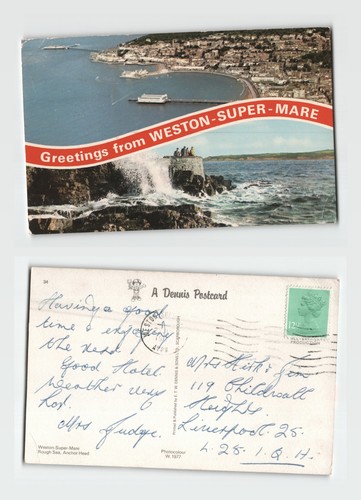 Greetings from WESTON-SUPER-MARE
34
A Dennis Postcard
Having a good
time & enjoying
the rest
Good Hotel
Weather very
hot.
Mrs Judge.
Weston-Super-Mare
Rough Sea, Anchor Head
Photocolour
W.1977
Mrs
119 Childwall
Heights
Liverpool 25.
L.25 1.Q.H.